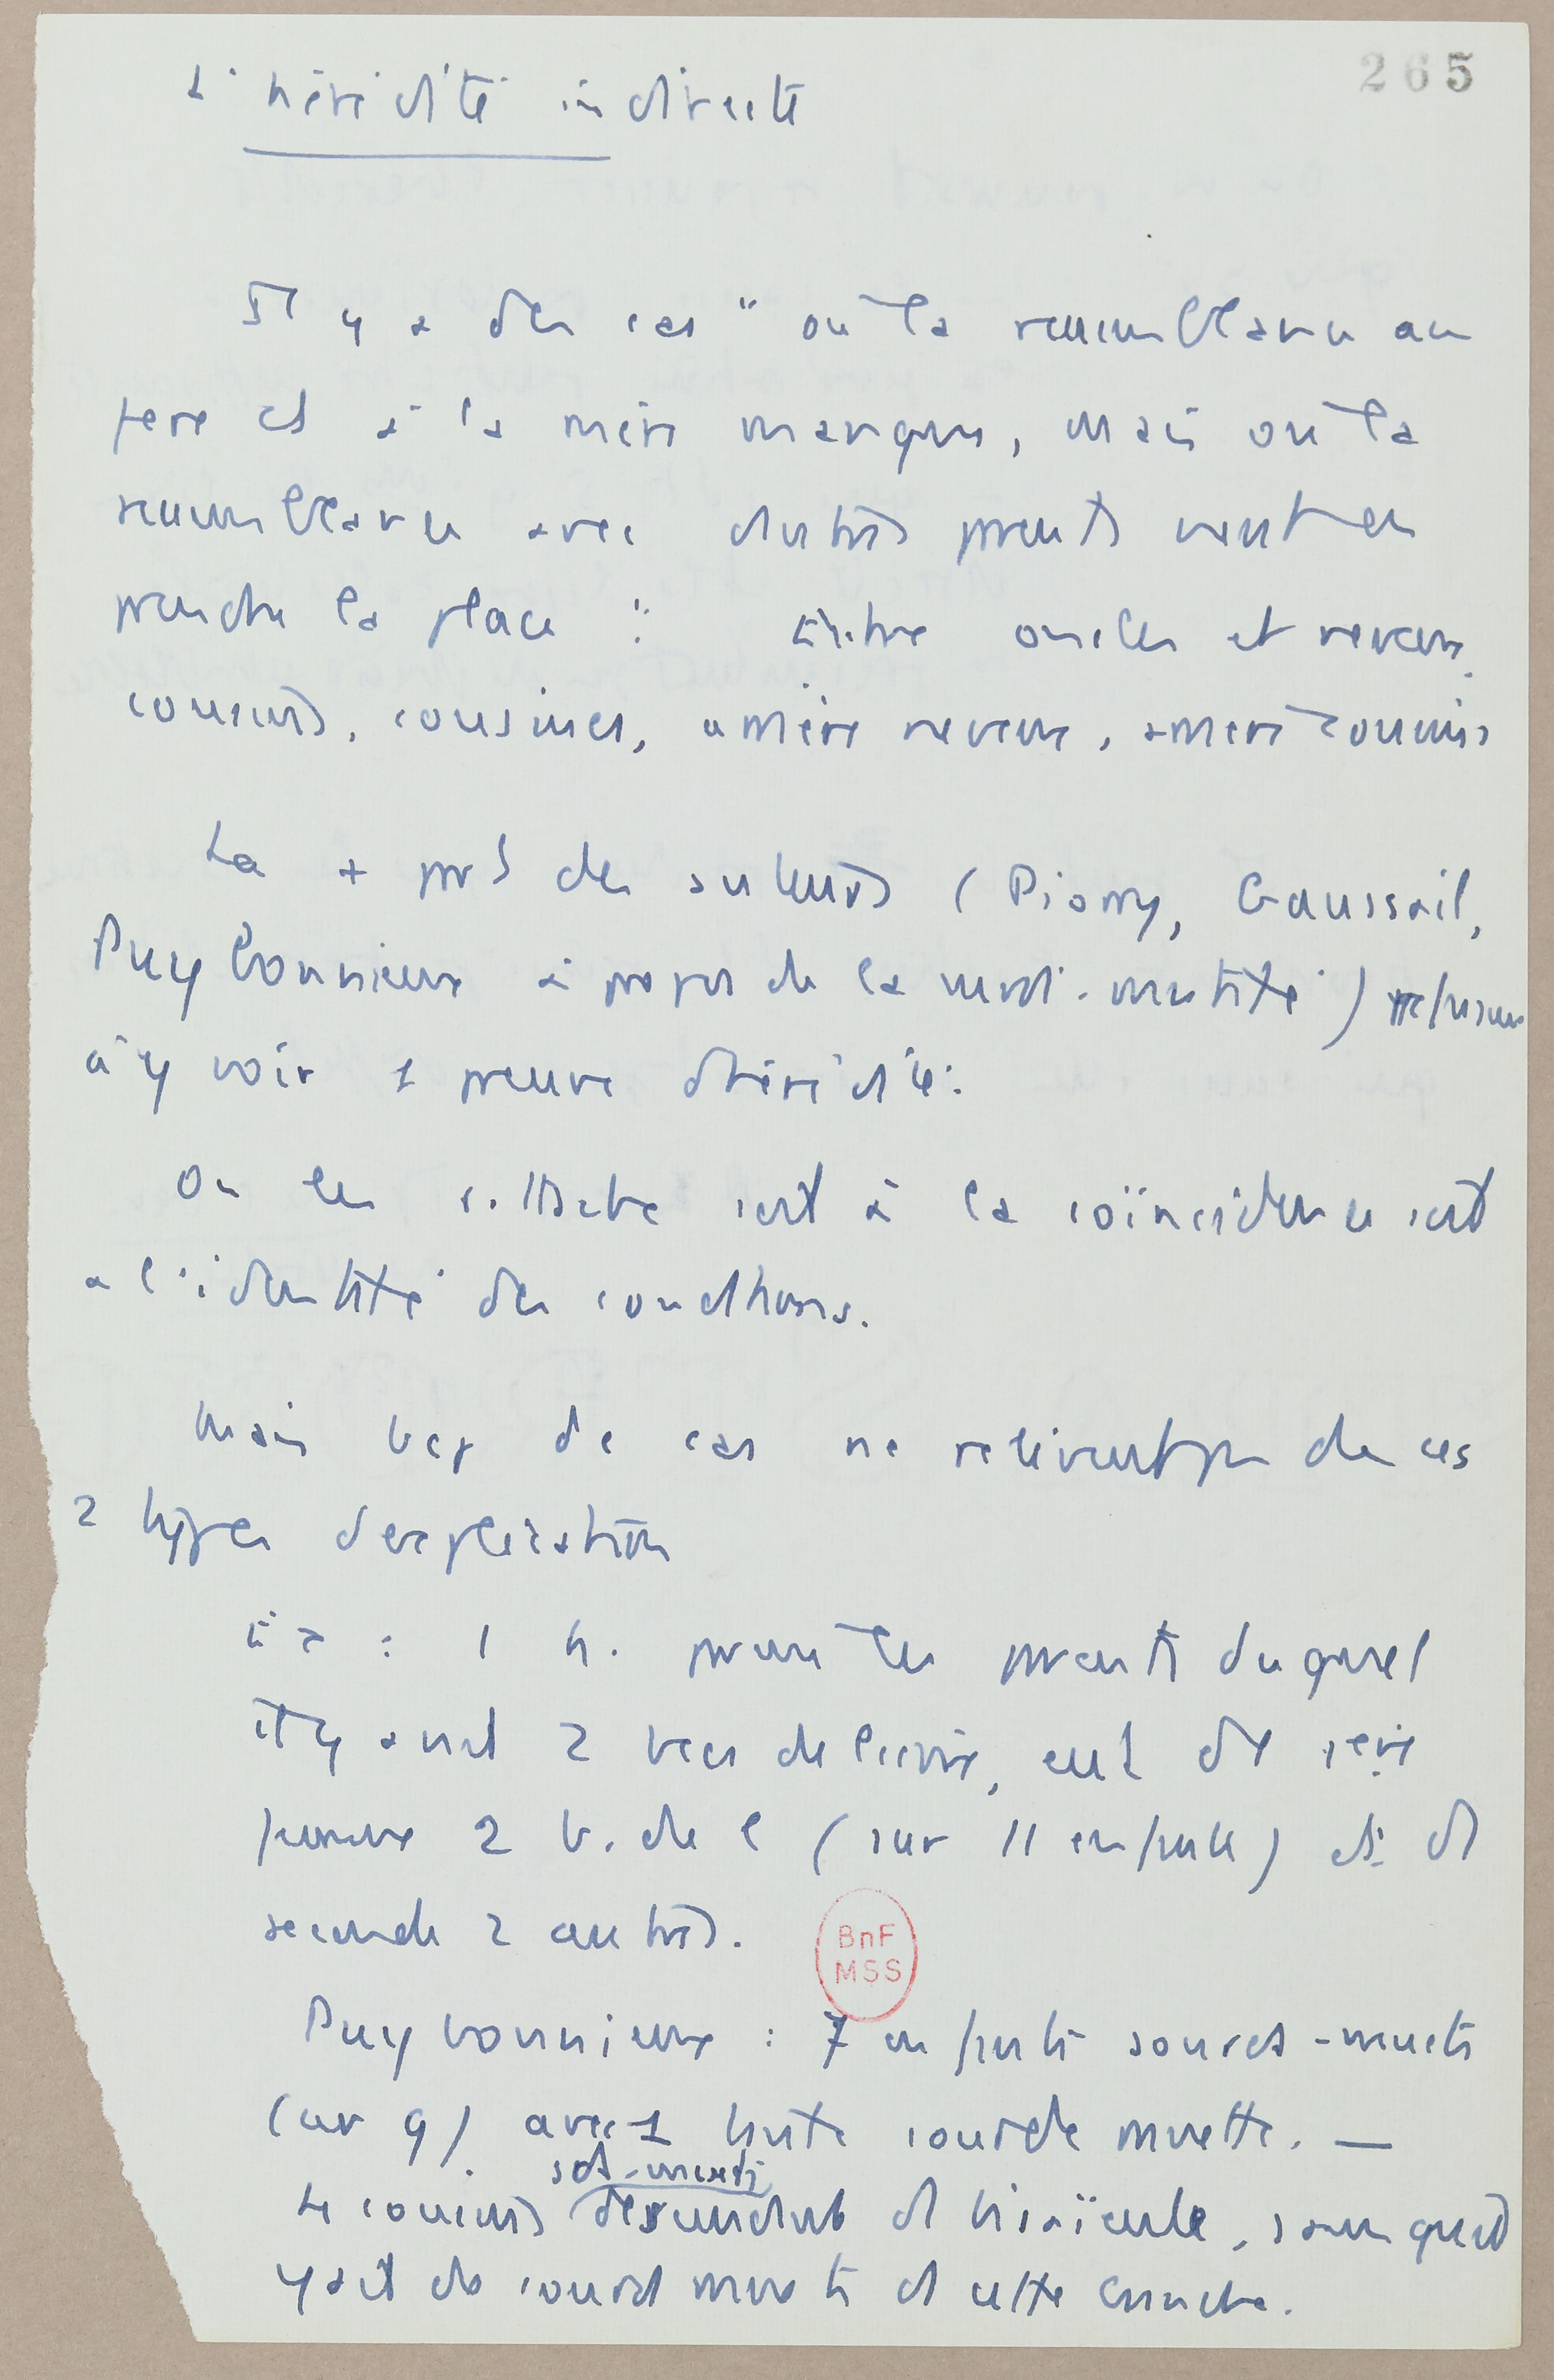 265
L'hérédité indirecte
Il y a des cas "où la ressemblance au
père et à la mère manque, mais où la
ressemblance avec d'autres parents vient en
prendre la place". Entre oncles et neveux,
cousins, cousines, arrière neveux, arrière cousins
La + part des auteurs (Piorry, Gaussail,
Puybonnieux à propos de la surdi-mutité) refusent
d'y voir 1 preuve d'hérédité:
On les rattache soit à la coïncidence soit
à l'identité des conditions.
Mais bcp de cas ne relèvent pas de ces
2 types d'explication
Ex : 1 h. parmi les parents duquel
il y avait 2 becs de lièvre, eut de sa
première 2 b. de l (sur 11 enfants) et de
seconde 2 autres.
BnF
MSS
Puybonnieux : 7 enfants sourds-muets
(sur 9) avec 1 tante sourde muette. —
sds-muets
4 cousins descendants d bisaïeule, sans qu'il
y ait de sourd muets d cette branche.